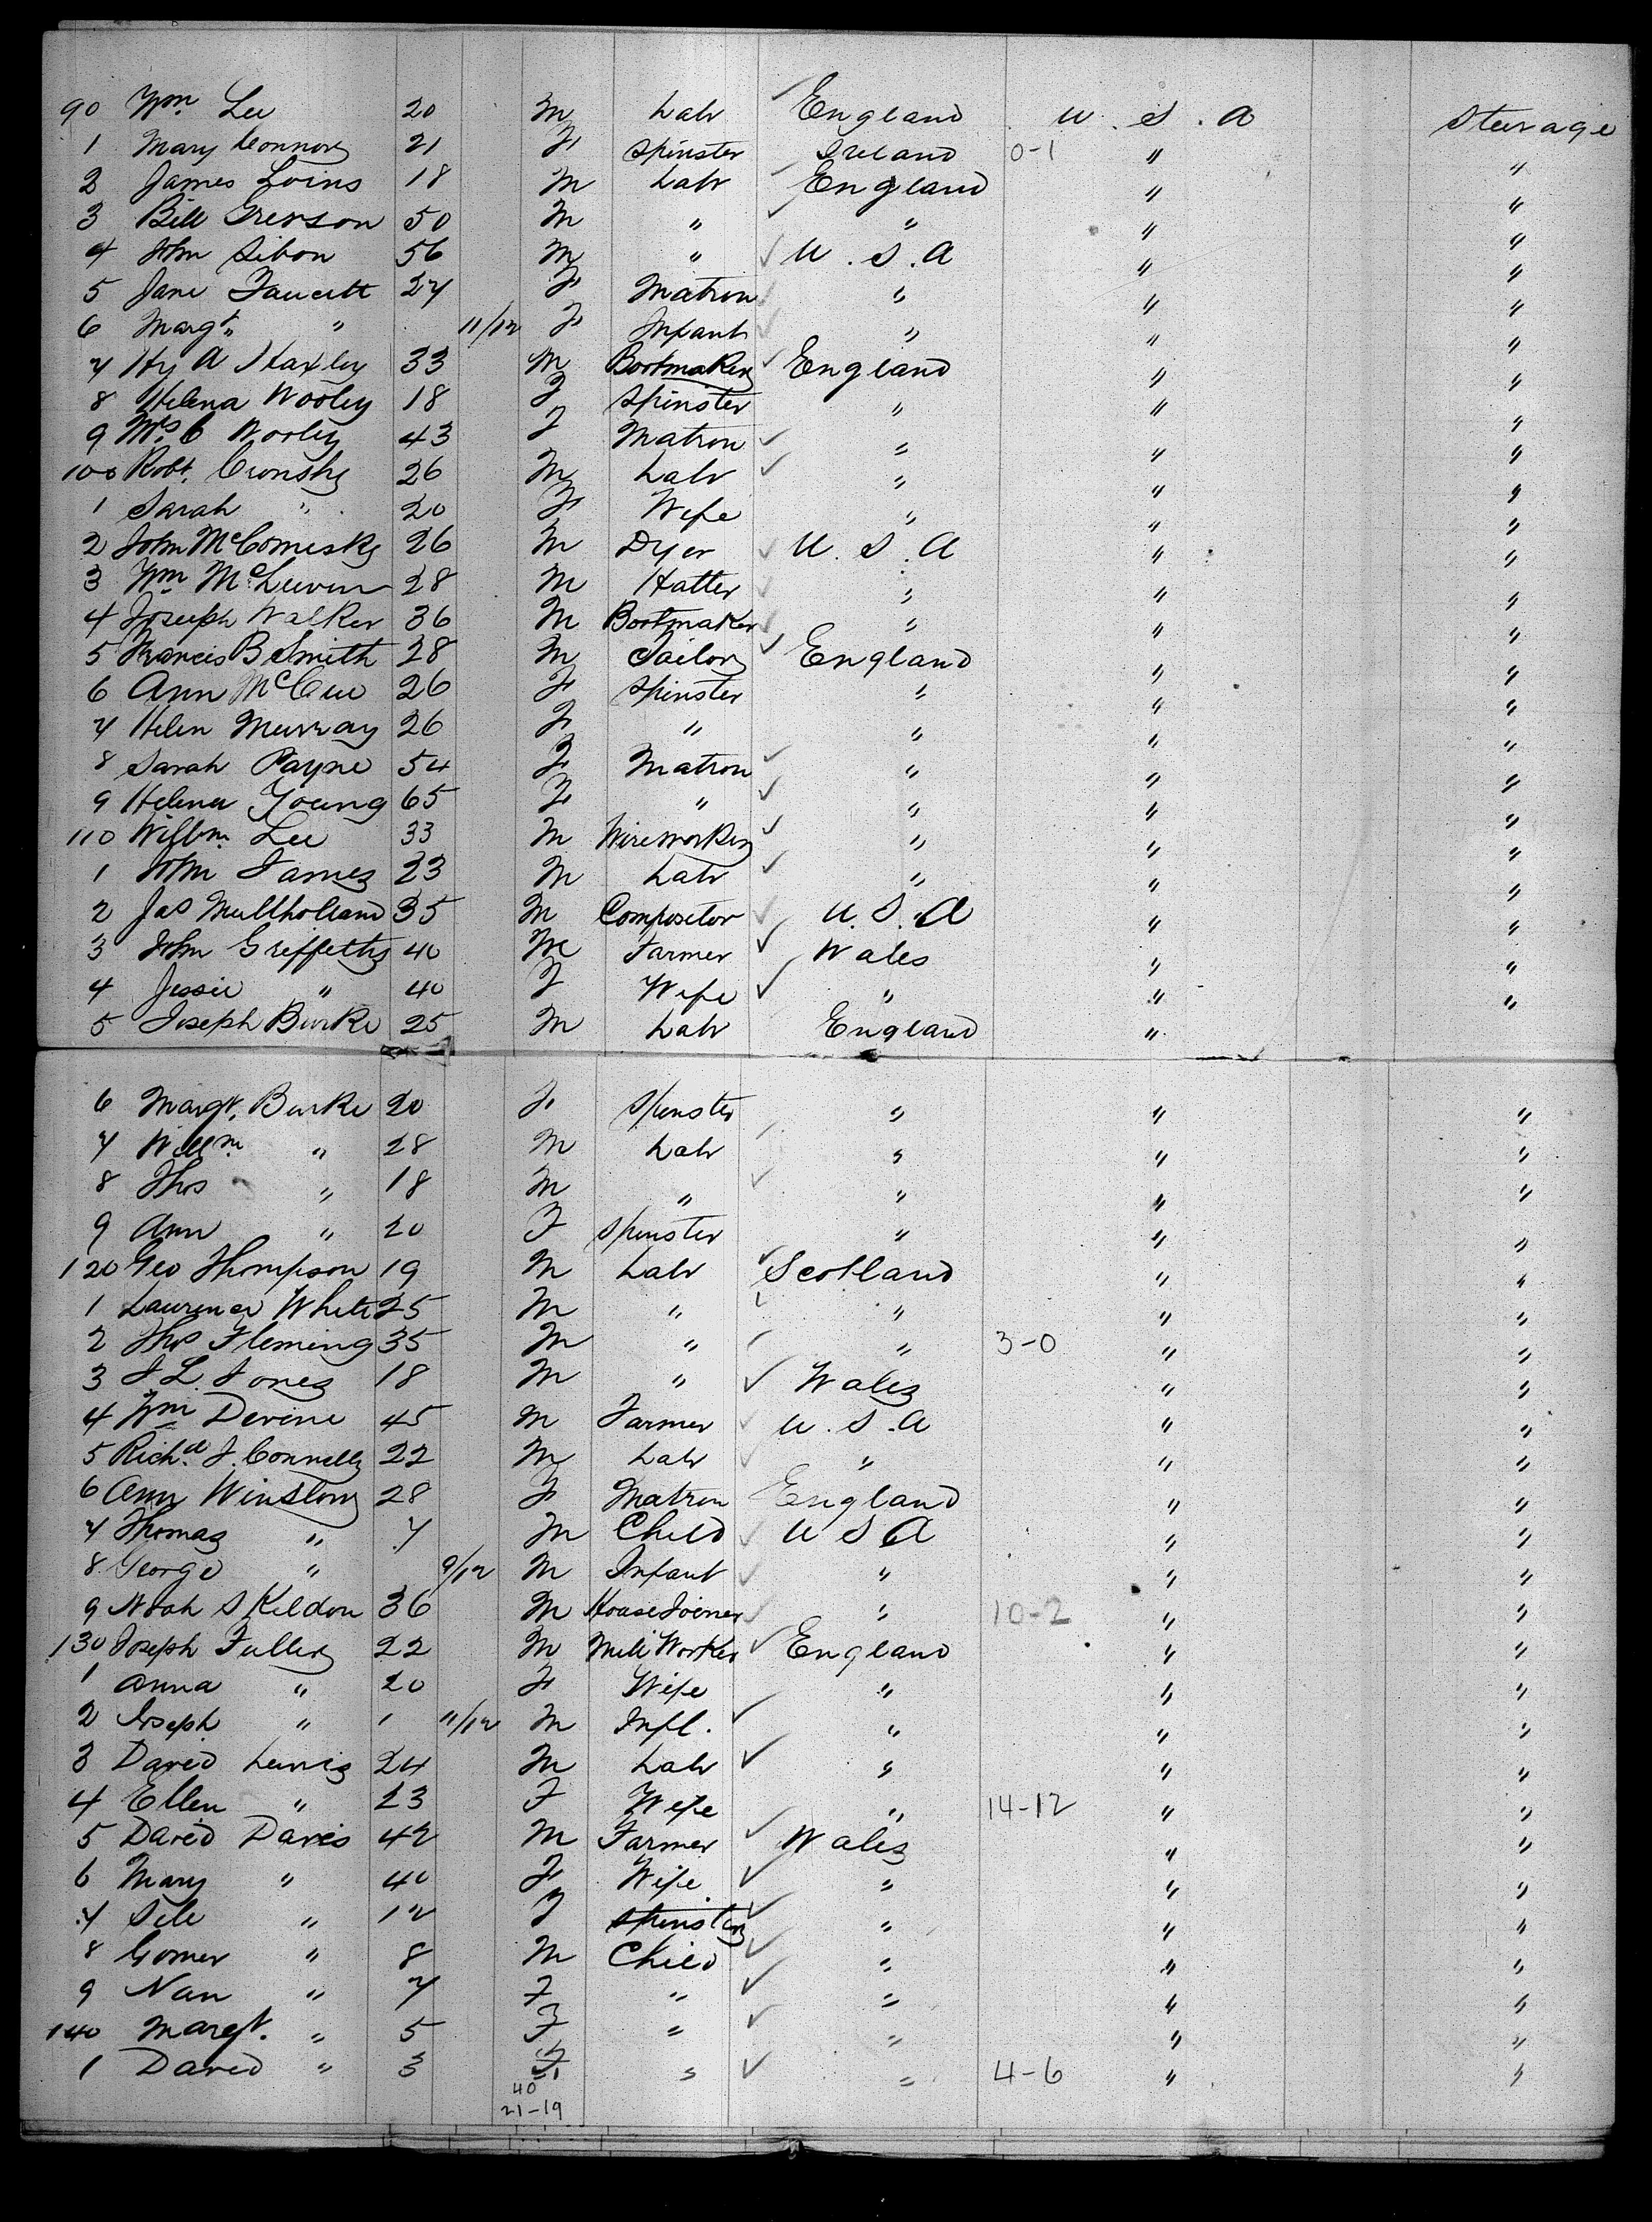 90 Wm Lee 20 M Labr England U.S.A Steerage
1 Mary Connors 21 F Spinster Ireland 0-1 " "
2 James Loins 18 M Labr England " "
3 Bill Grenson 50 M " " " "
4 John Sibon 56 M " U.S.A " "
5 Jane Faucett 27 F Matron " " "
6 Margt " 11/12 F Infant " " "
7 Hy A Haxley 33 M Bootmaker England " "
8 Helena Wooley 18 F Spinster " " "
9 Mrs C Wooley 43 F Matron " " "
100 Robt. Cronshy 26 M Labr " " "
1 Sarah " 20 F Wife " " "
2 John McComisky 26 M Dyer U.S.A " "
3 Wm 28 M Hatter " " "
4 Joseph Walker 36 M Bootmaker " " "
5 Francis B Smith 28 M Tailor England " "
6 Ann McCue 26 F Spinster " " "
7 Helen Murray 26 F " " " "
8 Sarah Payne 54 F Matron " " "
9 Helena Young 65 F " " " "
110 Willm Lee 33 M Wireworker " " "
1 John James 23 M Labr " " "
2 Jas Mullholland 35 M Compositor U.S.A " "
3 John Griffeths 40 M Farmer Wales " "
4 Jessie " 40 F Wife " " "
5 Joseph Burke 25 M Labr England "
6 Margt. Burke 20 F Spinster " " "
7 Willm " 28 M Labr " " "
8 Thos " 18 M " " " "
9 Ann " 20 F Spinster " " "
120 Geo Thompson 19 M Labr Scotland " "
1 Laurence White 25 M " " " "
2 Thos Fleming 35 M " " 3-0 " "
3 J L. Jones 18 M " Wales " "
4 Wm Devine 45 M Farmer U.S.A " "
5 Richd. J. Connelly 22 M Labr " " "
6 Ann Winslow 28 F Matron England " "
7 Thomas " 7 M Child U S A " "
8 George " 9/12 M Infant " " "
9 Noah S Kildon 36 M House Joiner " 10-2 " "
130 Joseph Fuller 22 M Mill Worker England " "
1 Anna " 20 F Wife " " "
2 Joseph " 1 11/12 M Inft. " " "
3 David Lewis 24 M Labr " " "
4 Ellen " 23 F Wife " 14-12 " "
5 David Davis 42 M Farmer Wales " "
6 Mary " 40 F Wife " " "
7 " 12 F Spinster " " "
8 Gomer " 8 M Child " " "
9 Nan " 7 F " " " "
140 Margt. " 5 F " " " "
1 David " 3 " " 4-6 " "
40
21-19